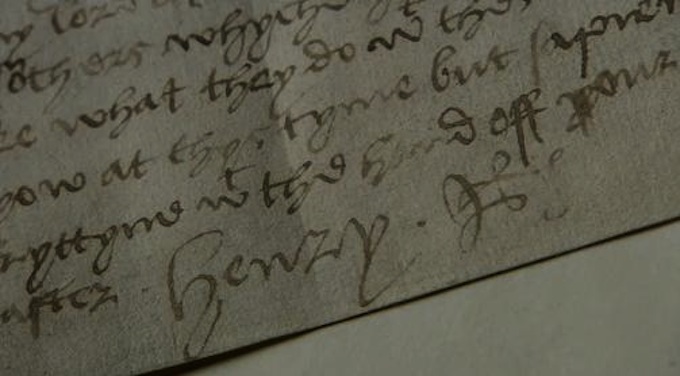 my lord
others whyche
what they do wt the
now at thys tyme but
wryttyne wt the hand off your
after. Henry. R